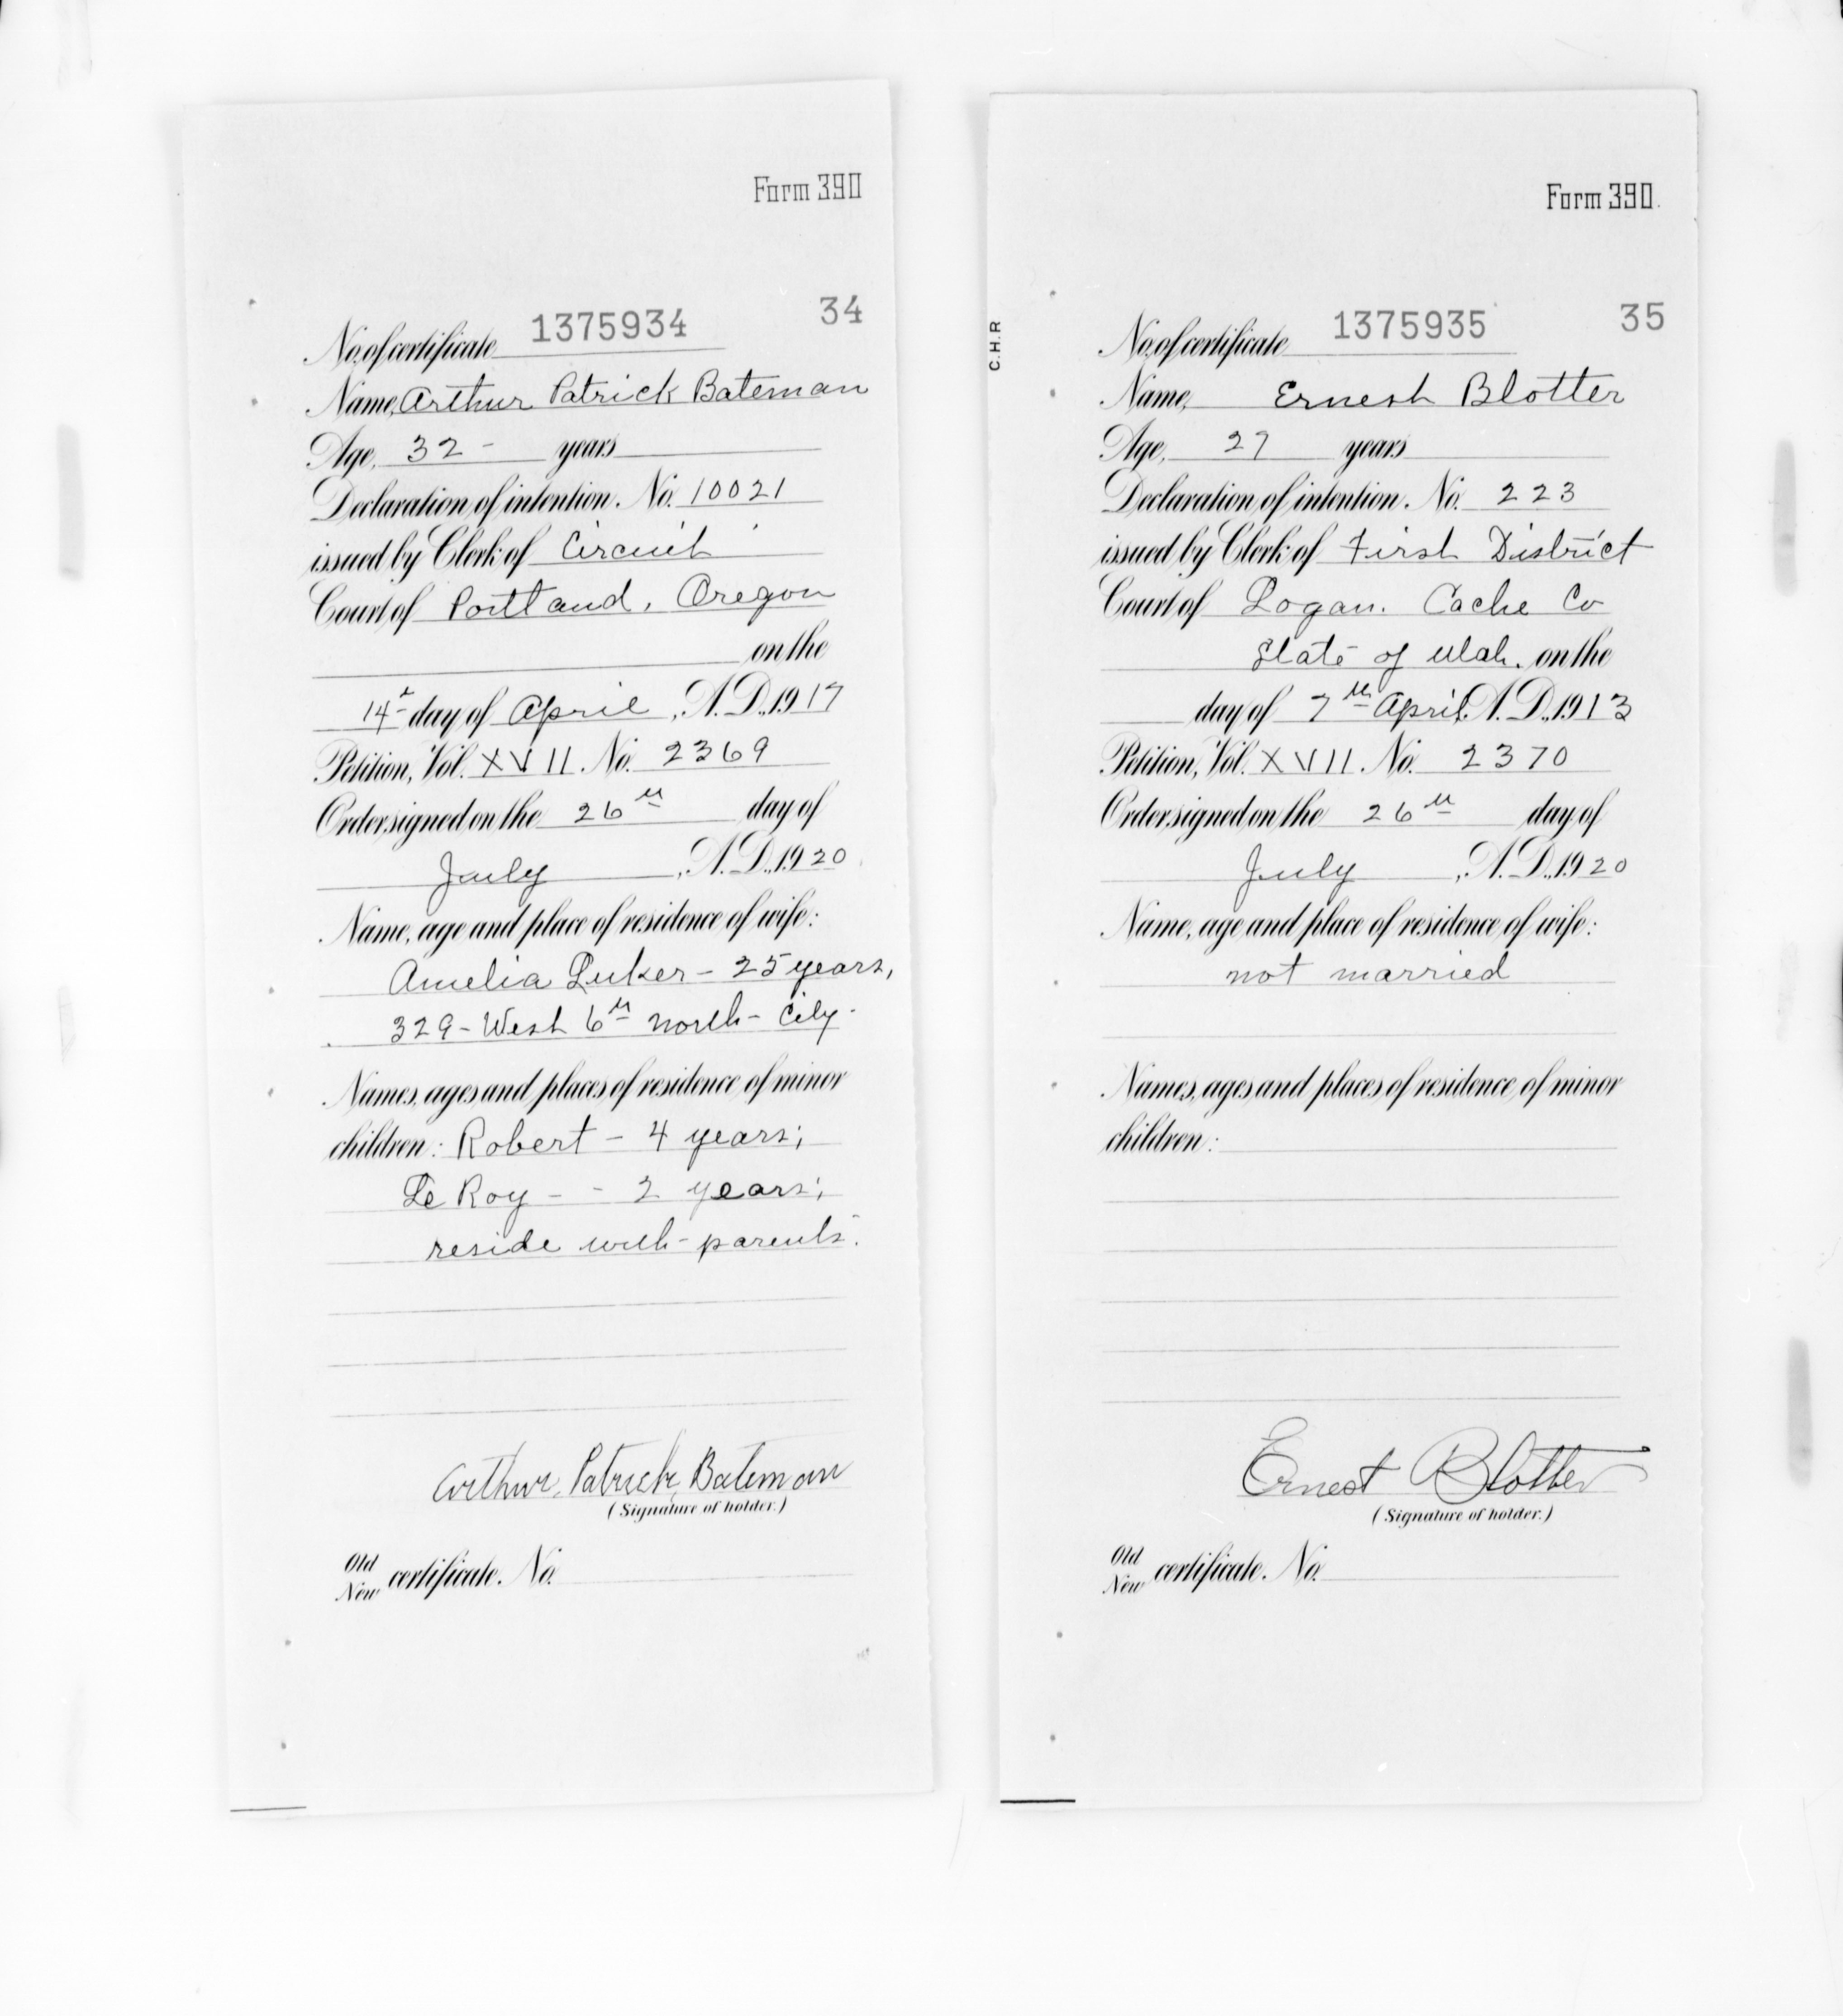 Form 390
34
No. of certificate 1375934
Name, Arthur Patrick Bateman
Age, 32 - years
Declaration of intention. No. 10021
issued by Clerk of Circuit
Court of Portland, Oregon
on the
14th day of April, A. D., 1917
Petition, Vol. XVII. No. 2369
Order signed on the 26th day of
July, A. D., 1920
Name, age and place of residence of wife:
Amelia Luker - 25 years,
329 - West 6th North - City.
Names, ages and places of residence of minor
children: Robert - 4 years;
Le Roy - - 2 years;
reside with parents.
Arthur Patrick Bateman
(Signature of holder.)
Old
New certificate. No.
C.H.R
Form 390.
35
No. of certificate 1375935
Name, Ernest Blotter
Age, 27 years
Declaration of intention. No. 223
issued by Clerk of First District
Court of Logan. Cache Co
State of Utah. on the
day of 7th April, A. D., 1913
Petition, Vol. XVII. No. 2370
Order signed on the 26th day of
July, A. D., 1920
Name, age and place of residence of wife:
not married
Names, ages and places of residence of minor
children:
Ernest Blotter
(Signature of holder.)
Old
New certificate. No.